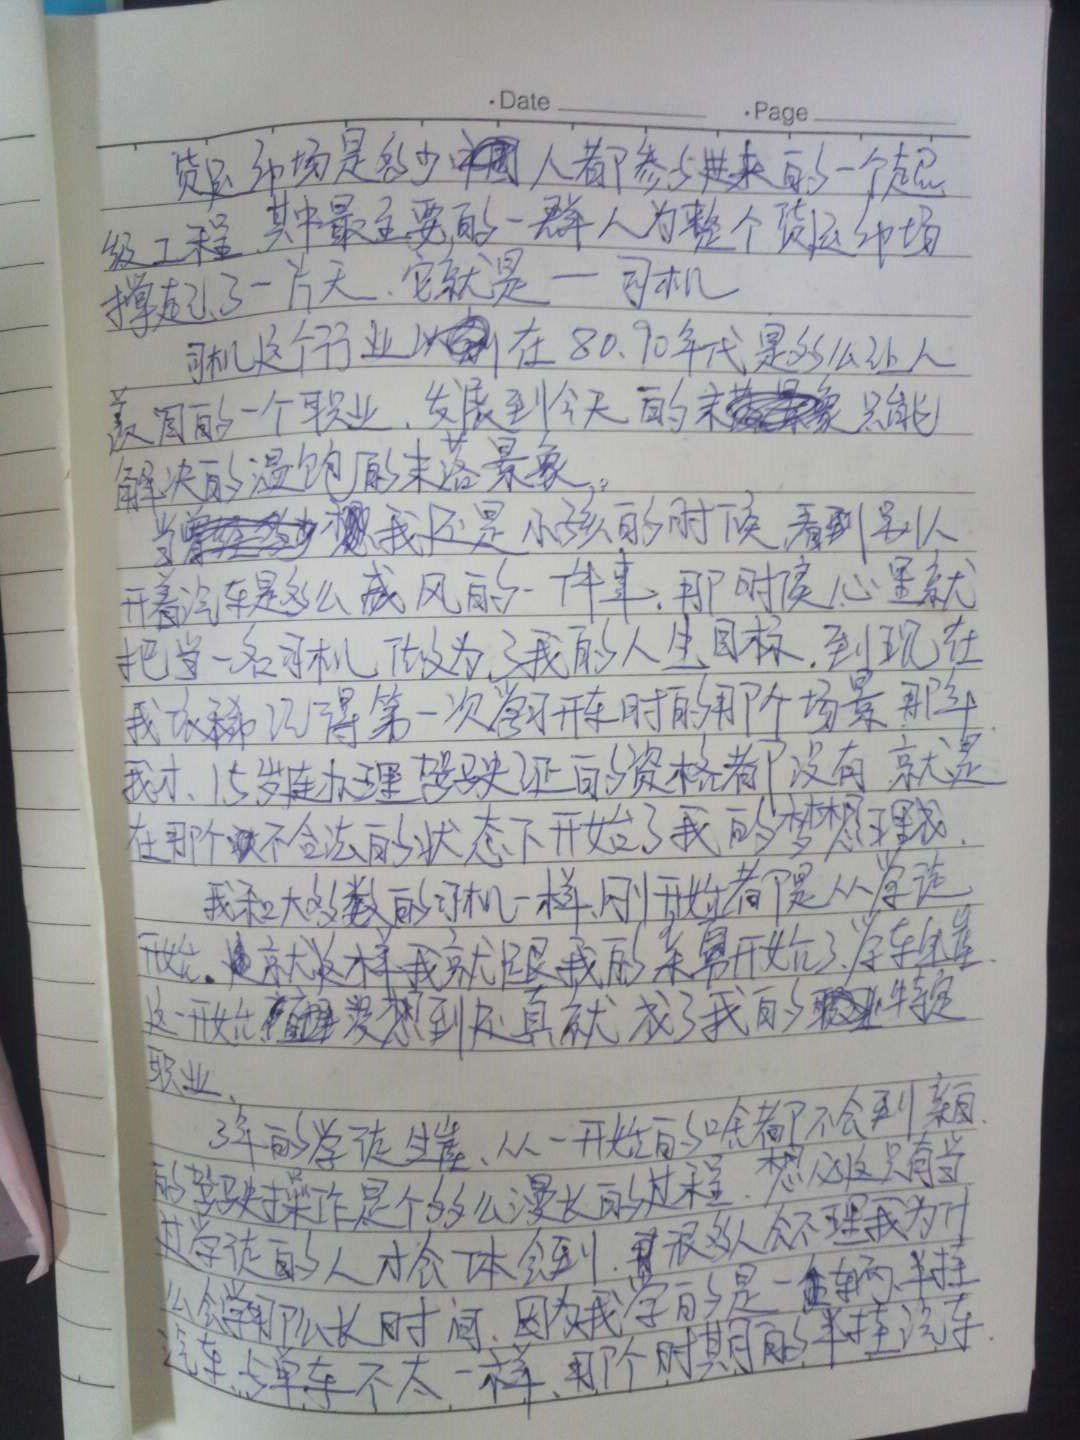 ·Date ·Page
货运市场是多少中国人都参与进来的一个超
级工程、其中最主要的一群人为整个货运市场
撑起了一片天、它就是一司机
司机这个行业 在80.90年代是多么让人
羡慕的一个职业、发展到今天的 只能
解决的温饱的末落景象。
当 我还是小孩的时候、看到别人
开着汽车是多么威风的一件事、那时候心里就
把当一名司机做为了我的人生目标、到现在
我依稀记得第一次学习开车时的那个场景 那年
我才、15岁连办理驾驶证的资格都没有 就是
在那个不合法的状态下开始了我的梦想
我和大多数的司机一样、刚开始都是从学徒
开始。就这样我就跟我的亲舅开始了、学车生涯
这一开始 没想到还真就成了我的
职业、
3年的学徒生涯、从一开始的啥都不会到
的驾驶操作是个多么漫长的过程、想必这只有当
过学徒的人才会体会到、很多人会不理我为什
么会学那么长时间、因为我学的是一车辆、半挂
汽车、与单车不太一样、那个时期的半挂汽车